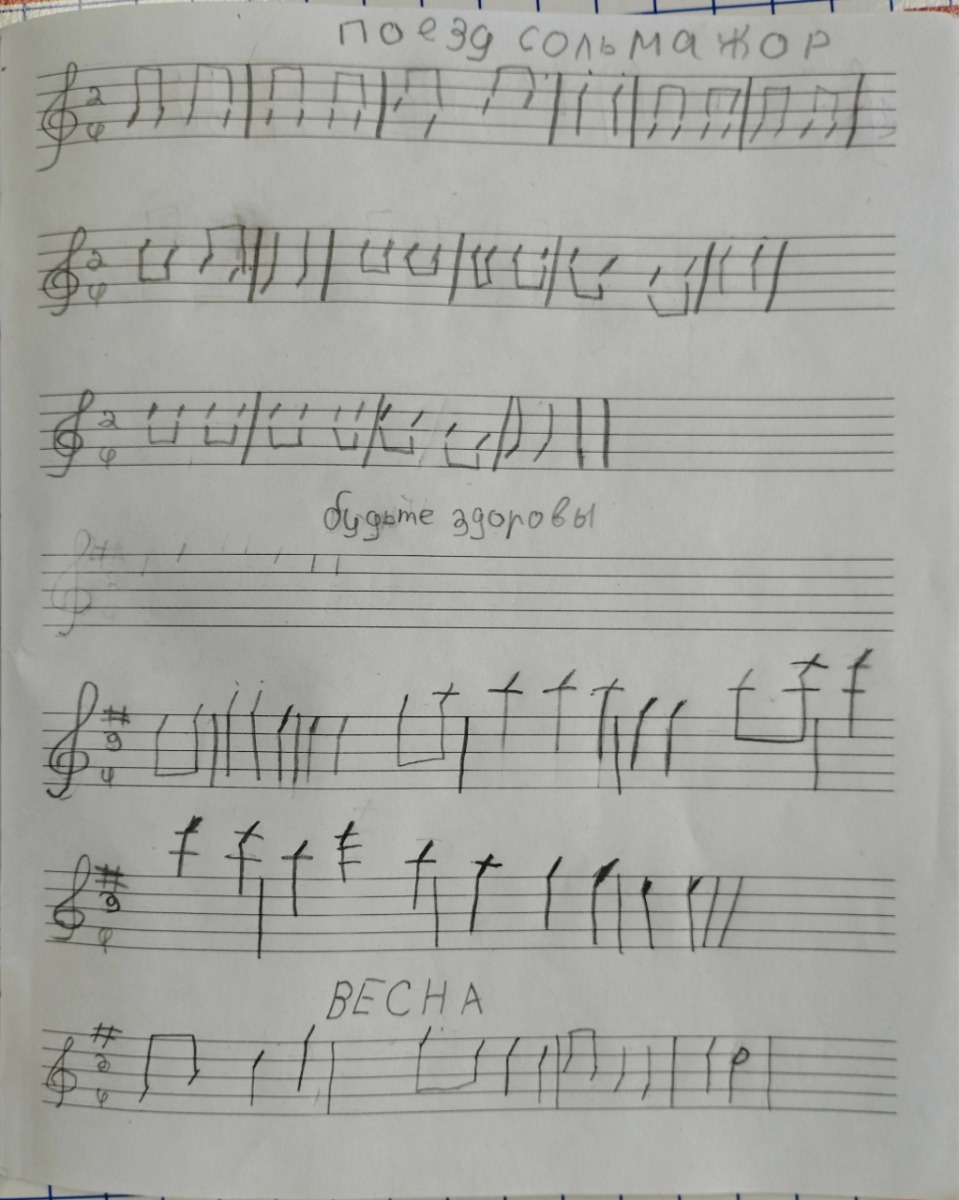 поезд сольмажор
2
4
2
4
2
4
будьте здоровы
#
9
4
#
9
4
ВЕСНА
#
2
4